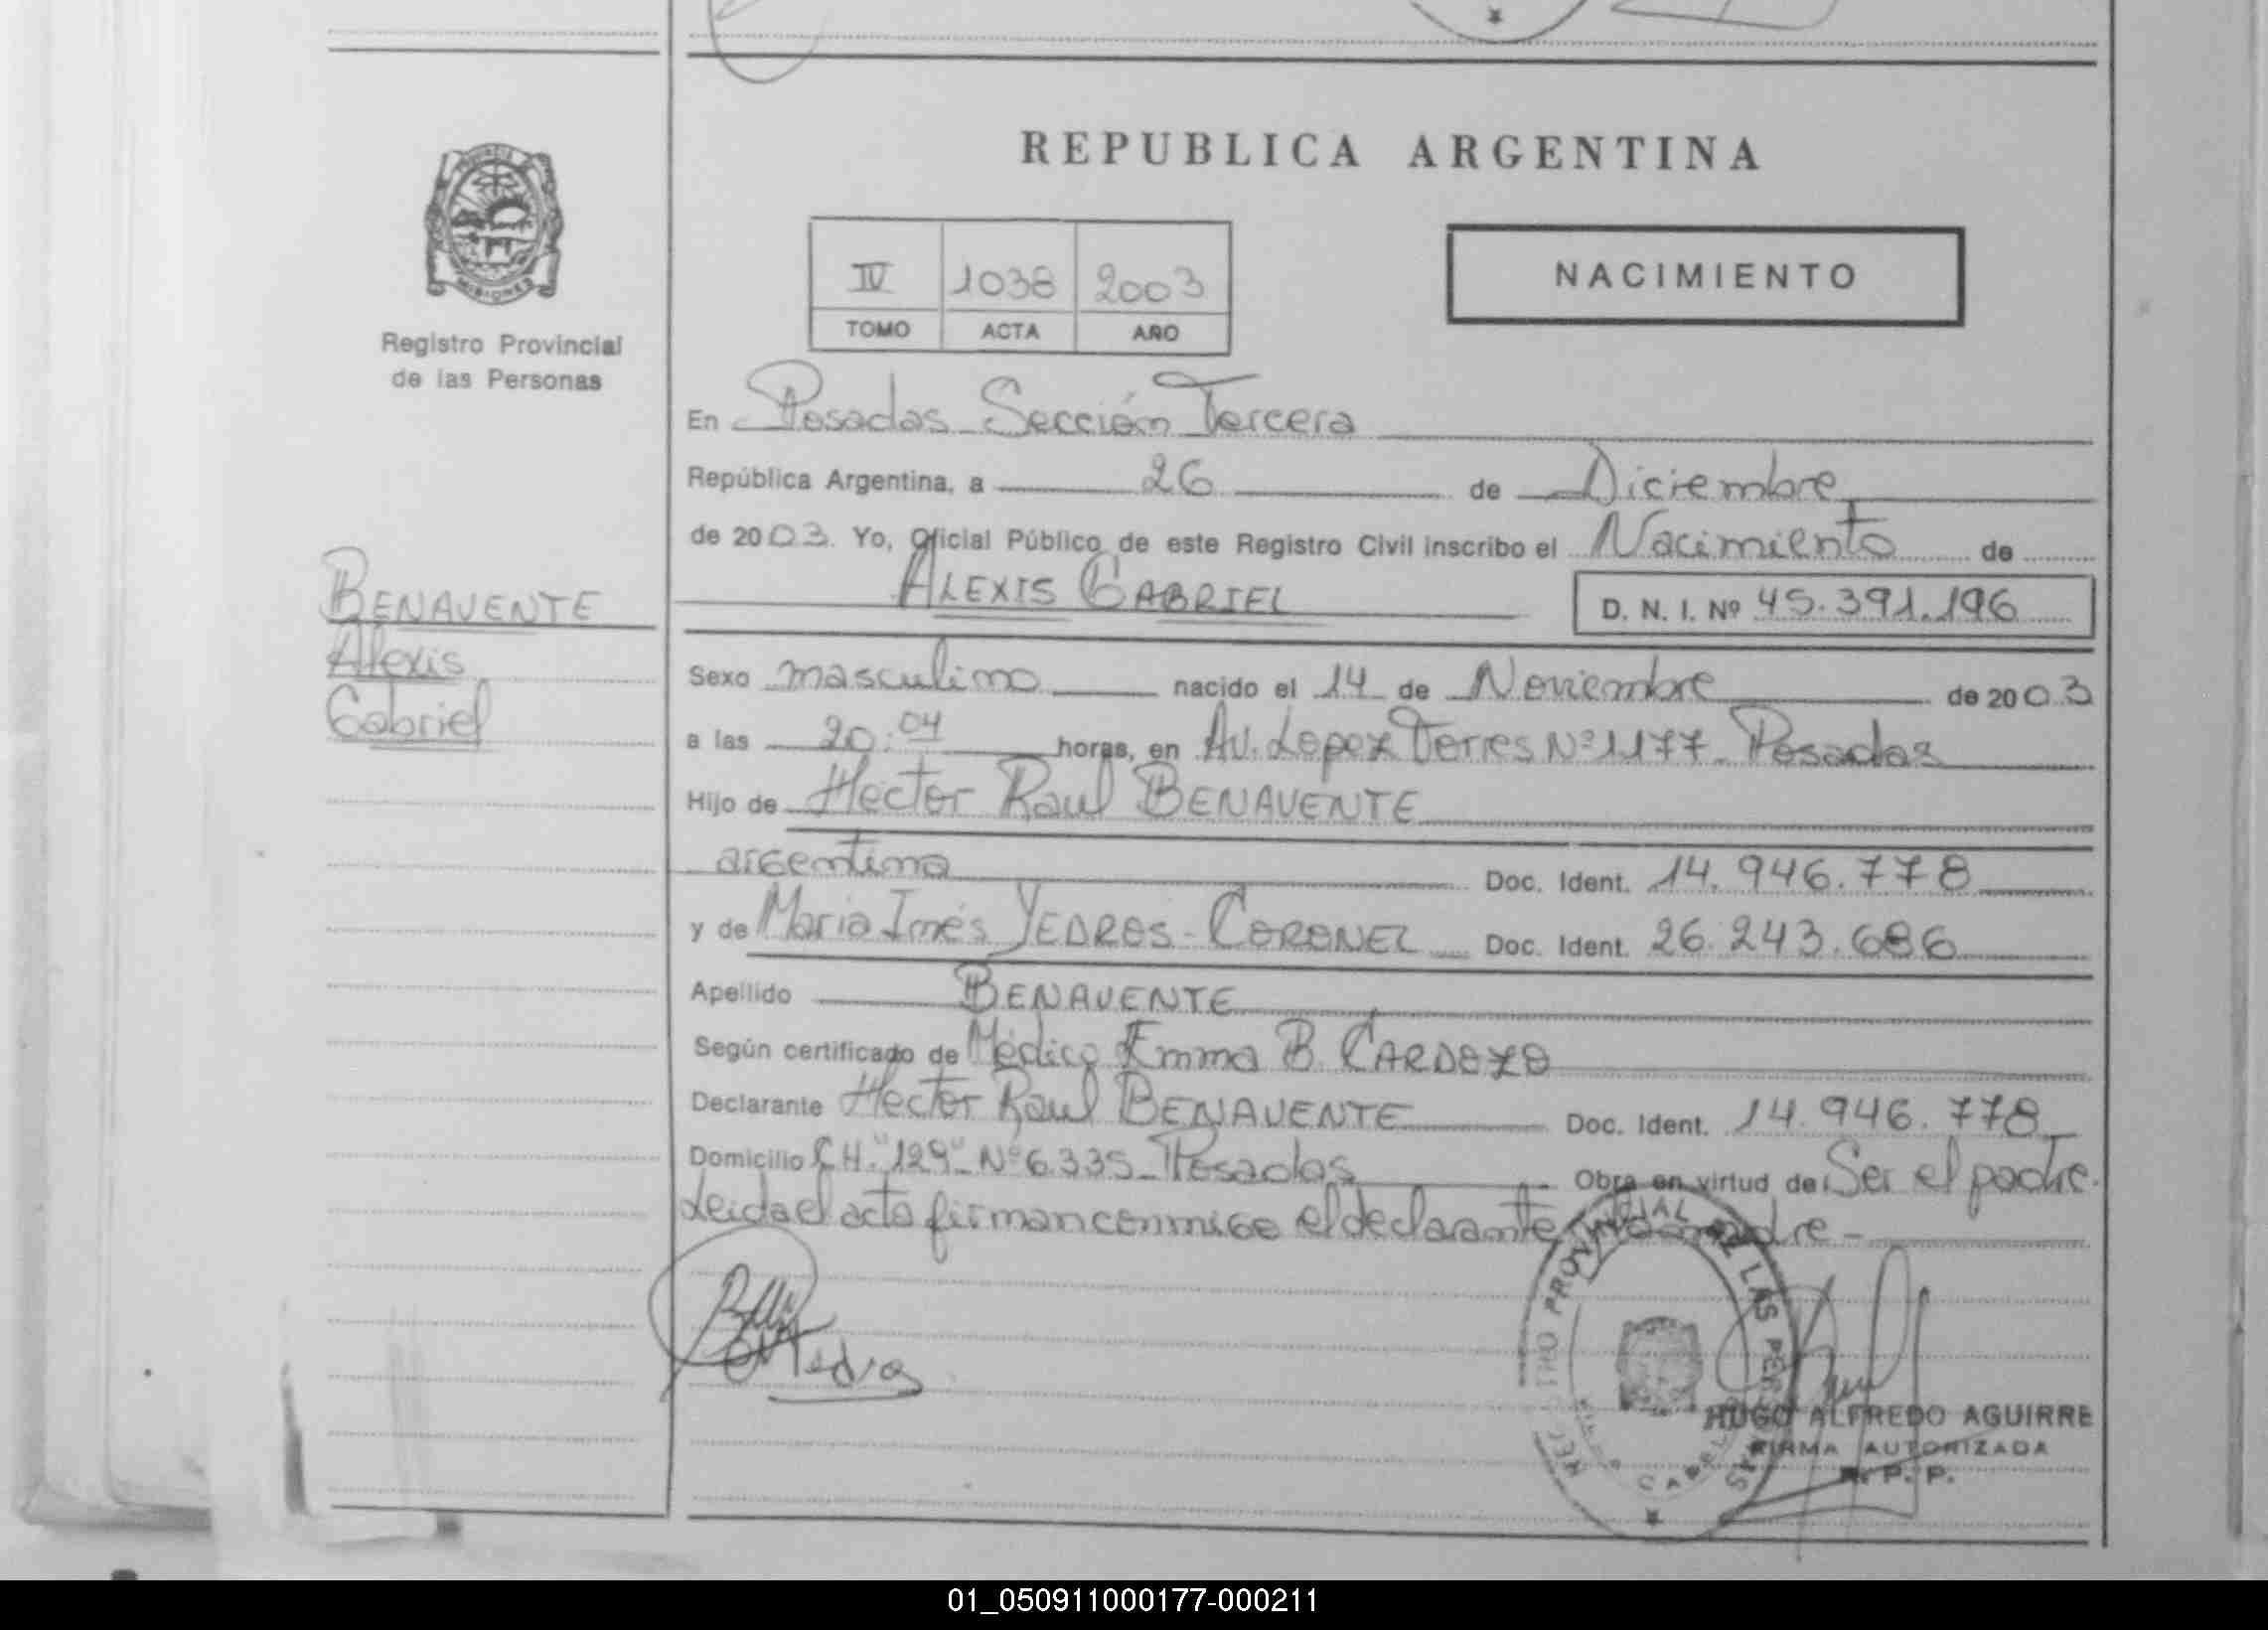 REPUBLICA ARGENTINA
PROVINCIA
MISIONES
Registro Provincial
de las Personas
IV 1038 2003
TOMO ACTA AÑO
NACIMIENTO
En Posadas Sección Tercera
República Argentina, a 26 de Diciembre
de 2003. Yo, Oficial Público de este Registro Civil inscribo el Nacimiento de
ALEXIS GABRIEL
D. N. I. Nº 45.391.196
BENAVENTE
Alexis
Gabriel
Sexo masculino nacido el 14 de Noviembre de 2003
a las 20:04 horas, en Av. Lopez Torres Nº 1177 - Posadas
Hijo de Hector Raul BENAVENTE
argentina Doc. Ident. 14.946.778
y de Maria Inés YEDROS - CORONEL Doc. Ident. 26.243.686
Apellido BENAVENTE
Según certificado de Médico Emma B. CARDOZO
Declarante Hector Raul BENAVENTE Doc. Ident. 14.946.778
Domicilio CH. "129" Nº 6.335 - Posadas Obra en virtud de Ser el padre.
Leida el acta firman conmigo el declarante y la madre -
REGISTRO PROVINCIAL DE LAS PERSONAS
HUGO ALFREDO AGUIRRE
FIRMA AUTORIZADA
R. P. P.
01_050911000177-000211